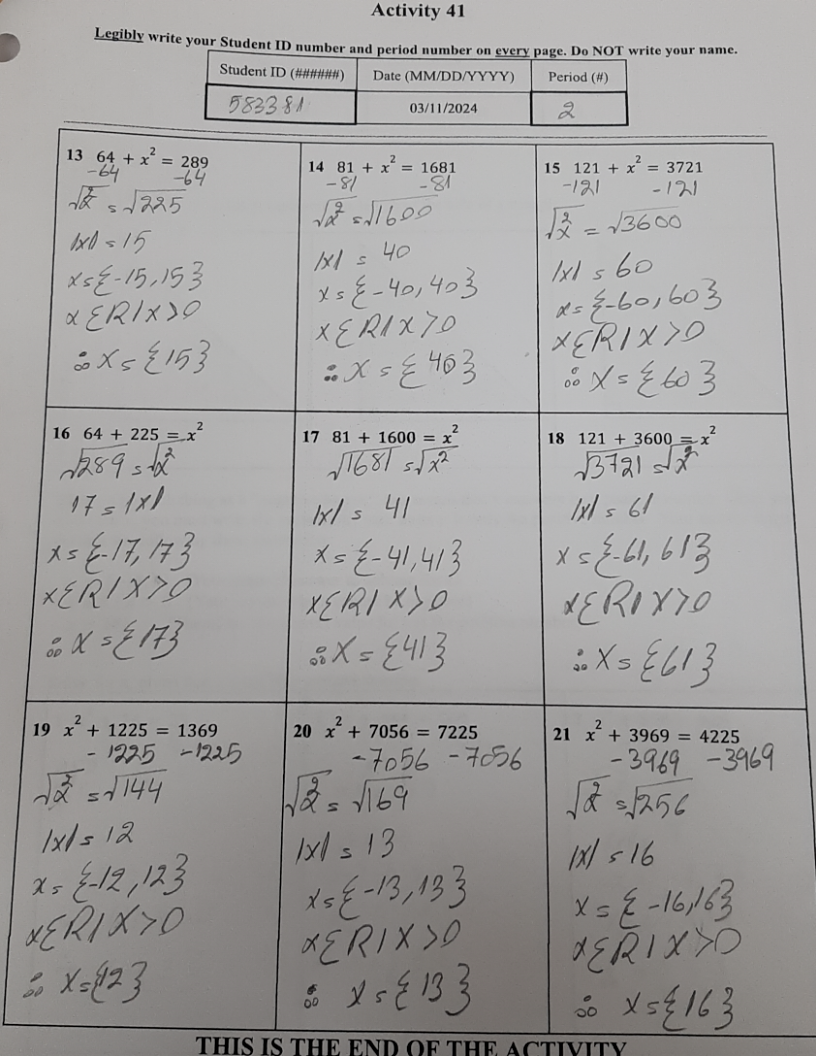 Activity 41
Legibly write your Student ID number and period number on every page. Do NOT write your name.
Student ID (######) Date (MM/DD/YYYY) Period (#)
583381 03/11/2024 2
13 64 + x² = 289
-64 -64
√x² = √225
|x| = 15
x = {-15, 15}
x ∈ R | x > 0
∴ x = {15}
14 81 + x² = 1681
-81 -81
√x² = √1600
|x| = 40
x = {-40, 40}
x ∈ R | x > 0
∴ x = {40}
15 121 + x² = 3721
-121 -121
√x² = √3600
|x| = 60
x = {-60, 60}
x ∈ R | x > 0
∴ x = {60}
16 64 + 225 = x²
√289 = √x²
17 = |x|
x = {-17, 17}
x ∈ R | x > 0
∴ x = {17}
17 81 + 1600 = x²
√1681 = √x²
|x| = 41
x = {-41, 41}
x ∈ R | x > 0
∴ x = {41}
18 121 + 3600 = x²
√3721 = √x²
|x| = 61
x = {-61, 61}
x ∈ R | x > 0
∴ x = {61}
19 x² + 1225 = 1369
-1225 -1225
√x² = √144
|x| = 12
x = {-12, 12}
x ∈ R | x > 0
∴ x = {12}
20 x² + 7056 = 7225
-7056 -7056
√x² = √169
|x| = 13
x = {-13, 13}
x ∈ R | x > 0
∴ x = {13}
21 x² + 3969 = 4225
-3969 -3969
√x² = √256
|x| = 16
x = {-16, 16}
x ∈ R | x > 0
∴ x = {16}
THIS IS THE END OF THE ACTIVITY